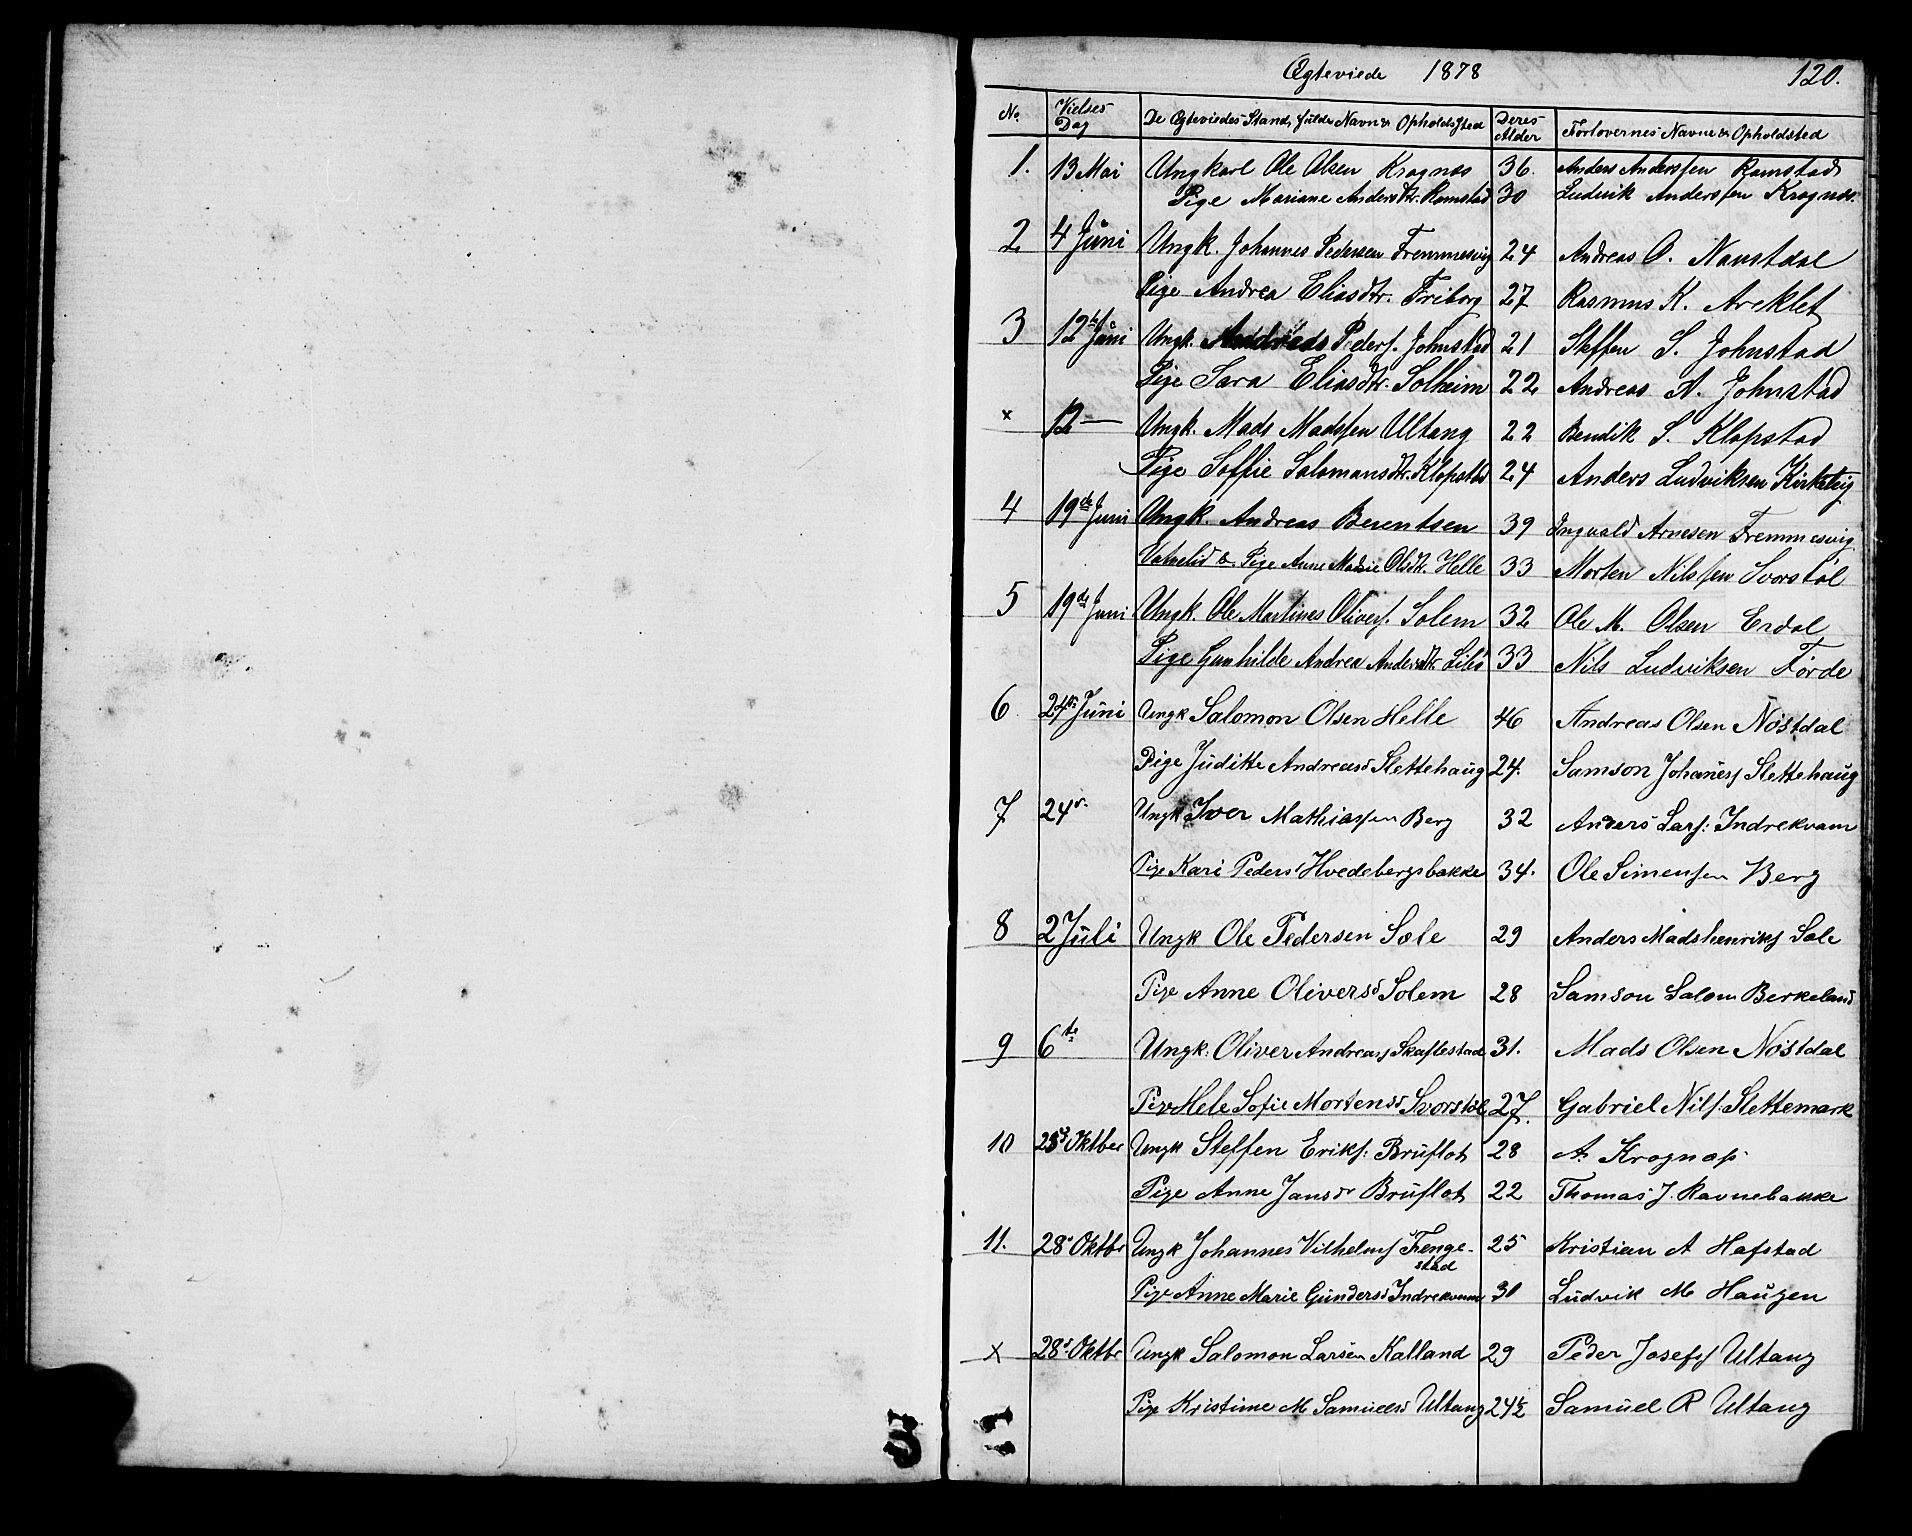 Ægteviede 1878 120.
No. Vielses Dag De Ægteviedes Stand, fulde Navn & Opholdssted Deres Alder Forlovernes Navne & Opholdsted
1. 13 Mai Ungkarl Ole Olsen Krognæs 36. Anders Anderssen Ramstad
Pige Mariane Andersdtr. Ramstad 30 Ludvik Anderssen Krognæs.
2 4 Juni Ungk. Johannes Pedersen Fremmesvig 24 Andreas O. Naustdal
Pige Andrea Eliasdtr. Friborg 27 Rasmus K. Areklet
3 12te Juni Ungk. Andreas Peders. Johnstad 21 Steffen S. Johnstad
Pige Sara Eliasdtr. Solheim 22 Andreas A. Johnstad
x 12 — Ungk. Mads Madssen Ultang 22 Bendik S. Klopstad
Pige Soffie Salomansdtr. Klopstad 24 Anders Ludviksen
4 19de Juni Ungk. Andreas Berentsen 39 Ingvald Arnesen Fremmesvig
Vatnelid & Pige Anne Marie Olsdtr. Helle 33 Morten Nilssen Svorstøl
5 19de Juni Ungk. Ole Martines Olivers. Solem 32 Ole M. Olsen Erdal
Pige Gunhilde Andrea Andersdtr. Lilø 33 Nils Ludviksen Førde
6 24de Juni Ungk Salomon Olsen Helle 46 Andreas Olsen Nøstdal
Pige Juditte Andreasd Slettehaug 24. Samson Johaness Slettehaug
7 24de Ungk Iver Mathiassen Berg 32 Anders Lars: Indrekvam
Pige Kari Pedersd Hvedebergsbakke 34. Ole Simensen Berg
8 2 Juli Ungk Ole Pedersen Sæle 29 Anders Madshenriks Sæle
Pige Anne Oliversd Solem 28 Samson Salom Berkeland
9 6te Ungk: Oliver Andreas Skaflestad 31. Mads Olsen Nøstdal
Pige Hele Sofie Mortensd Svorstøl 27. Gabriel Nils. Slettemark
10 Oktber Ungk Steffen Eriks: Bruflot 28 A. Krognæs
Pige Anne Jansdr Bruflot 22 Thomas J. Ravnebakke
11. 28d Oktbr Ungk Johannes Vilhelms Fenge- 25 Kristian A Hafstad
stad
Pige Anne Marie Gundersd Indrekvam 30 Ludvik M Haugen
x 28d Oktbr Ungk Salomon Larsen Kalland 29 Peder Josefs Ultang
Pige Kristine M Samuelsd Ultang 24½ Samuel R Ultang